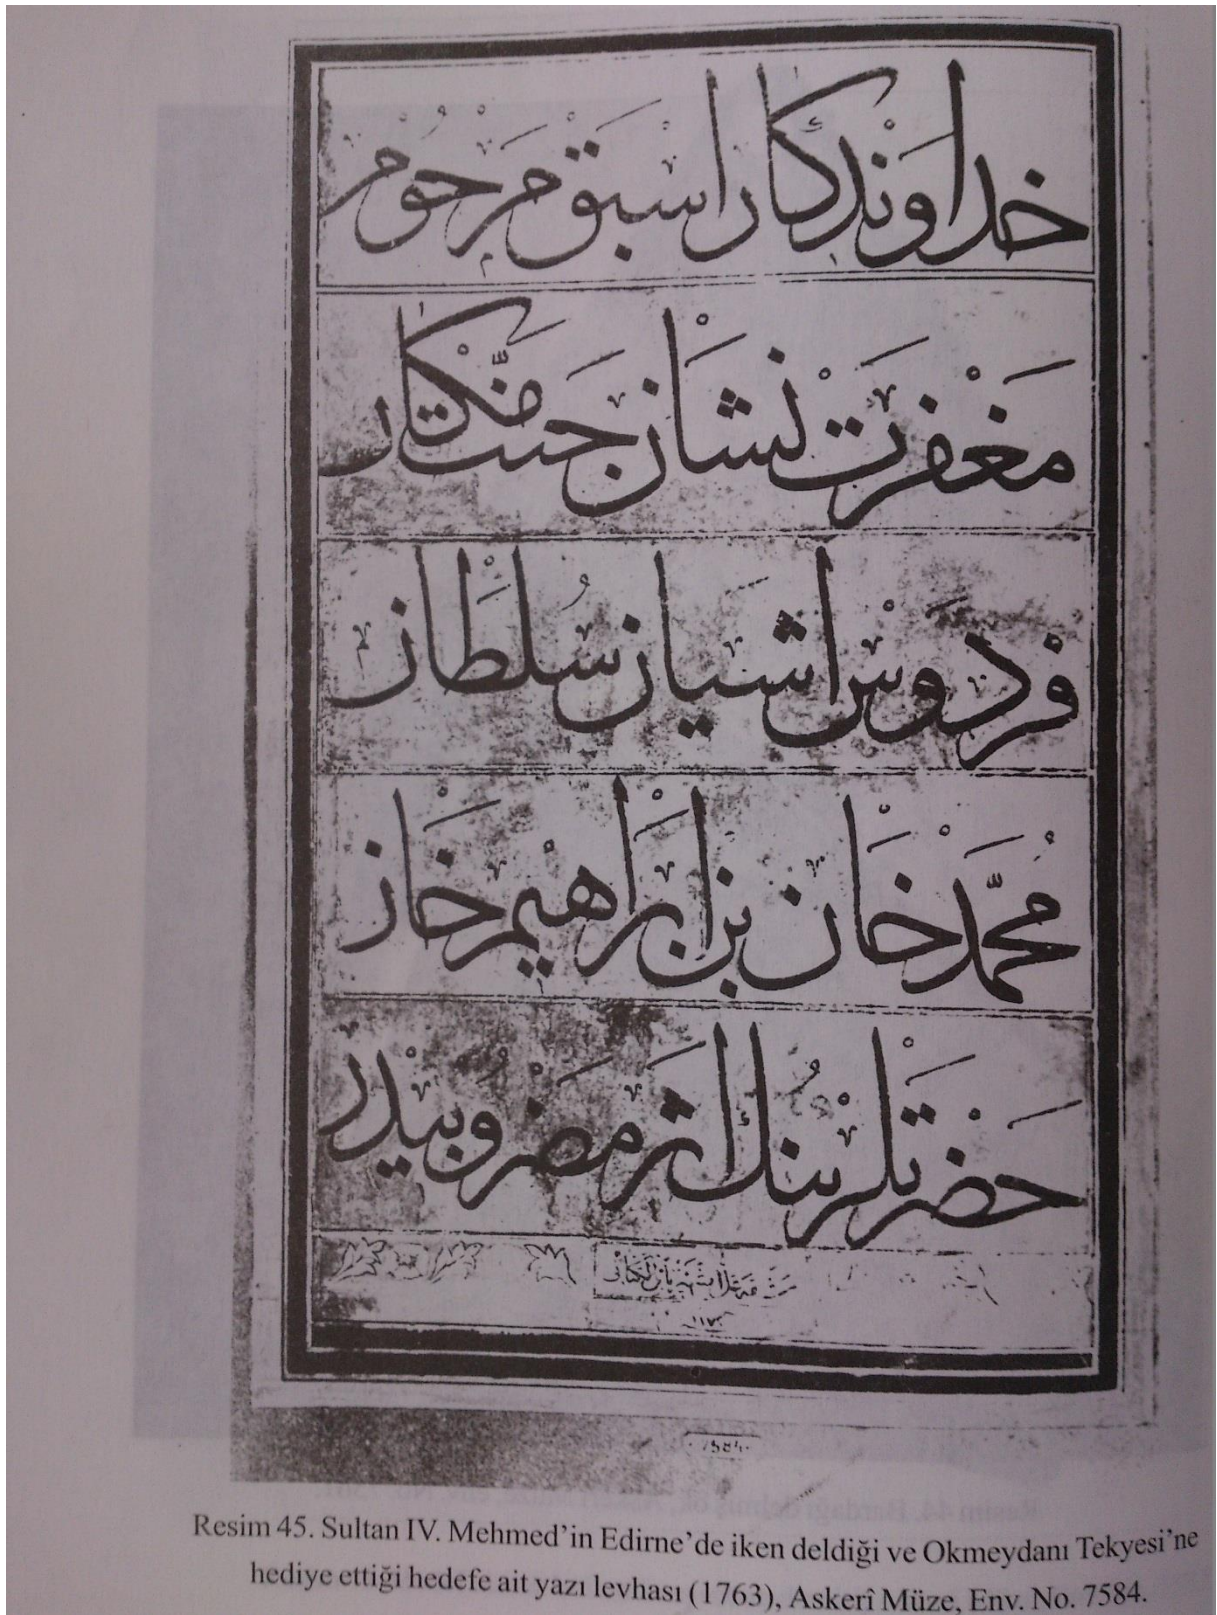 خداوندكار اسبق مرحوم
مغفرت نشان جنتمكان
فردوس اشيان سلطان
محمد خان بن ابراهيم خان
حضرتلرينك اثر مضروبيدر
7584
Resim 45. Sultan IV. Mehmed'in Edirne'de iken deldiği ve Okmeydanı Tekyesi'ne
hediye ettiği hedefe ait yazı levhası (1763), Askerî Müze, Env. No. 7584.